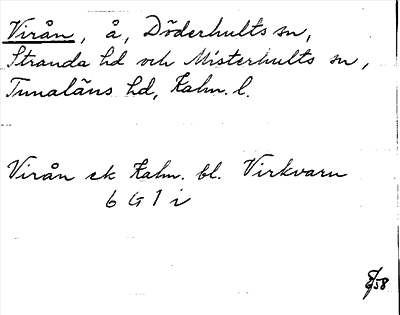 Virån, å, Döderhults sn,
Stranda hd och Misterhults sn,
Tunaläns hd, Kalm. l.
Virån ek Kalm. bl. Virkvarn
6 G 1 i
8/58